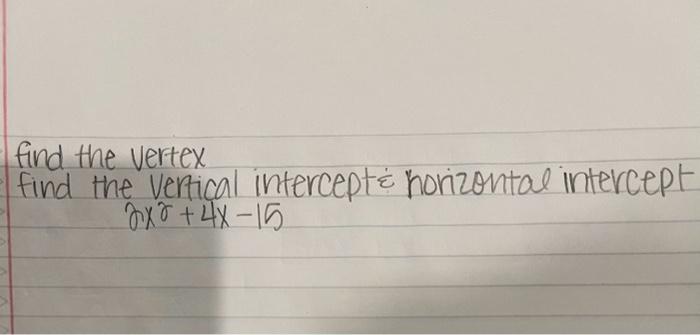 find the vertex
find the vertical intercept & horizontal intercept
2x² + 4x - 15